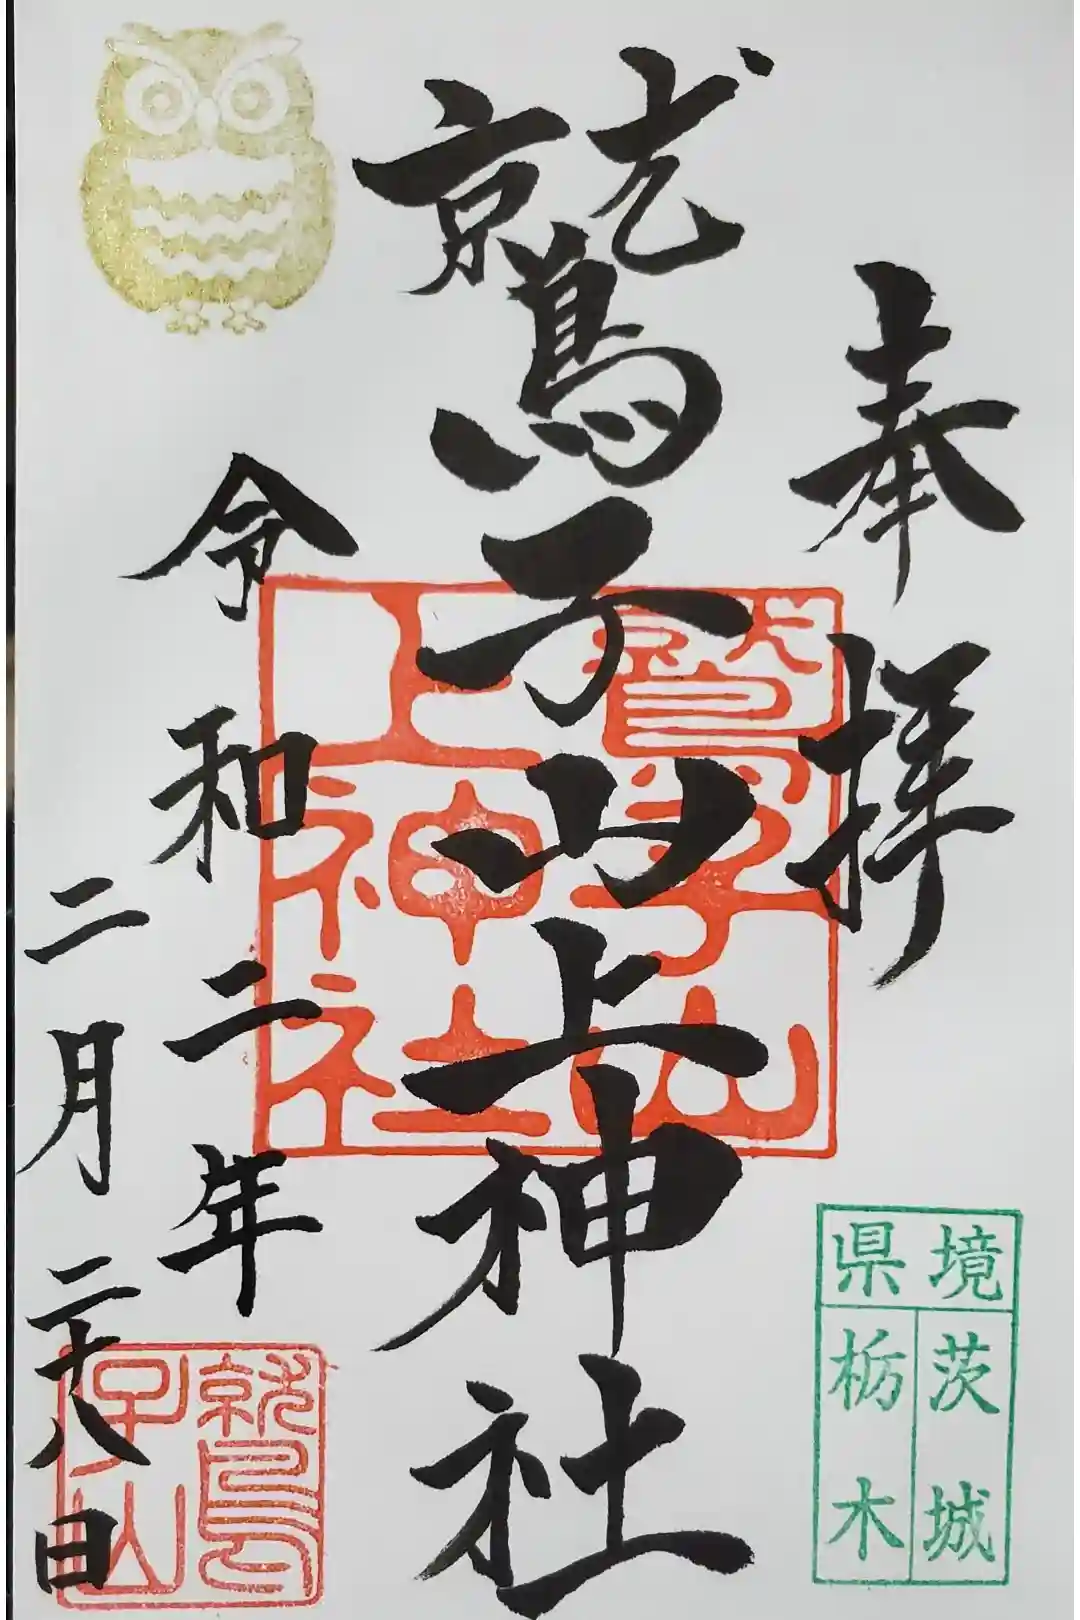 奉拝
鷲子山上神社
令和二年
二月二十八日
鷲子山
上神社
鷲子山
境県
茨城
栃木